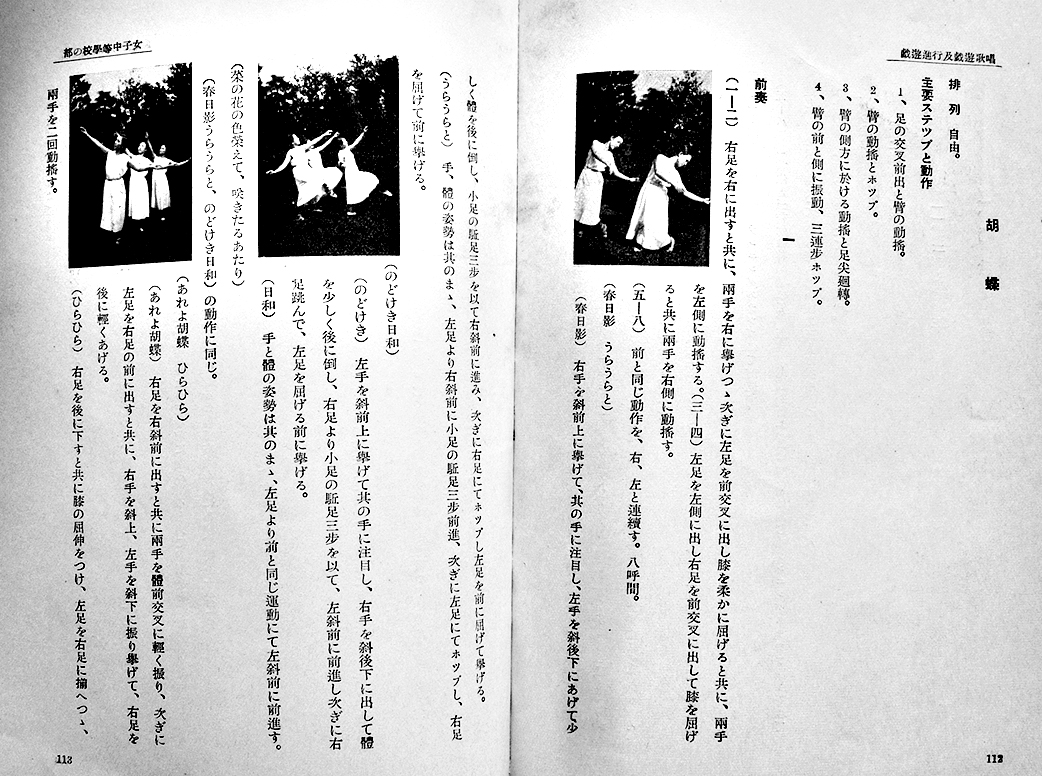 唱歌遊戯及行進遊戯
胡蝶
排列 自由。
主要ステップと動作
1、足の交叉前出と臂の動搖。
2、臂の動搖とホップ。
3、臂の側方に於ける動搖と足尖廻轉。
4、臂の前と側に振動、三連步ホップ。
一
前奏
(一—二) 右足を右に出すと共に、兩手を右に擧げつゝ次ぎに左足を前交叉に出し膝を柔かに屈げると共に、兩手
を左側に動搖する。(三—四)左足を左側に出し右足を前交叉に出して膝を屈げ
ると共に兩手を右側に動搖す。
(五—八) 前と同じ動作を、右、左と連續す。八呼間。
(春日影 うらうらと)
(春日影) 右手を斜前上に擧げて、其の手に注目し、左手を斜後下にあげて少
112
女子中等學校の部
しく體を後に倒し、小足の駈足三步を以て右斜前に進み、次ぎに右足にてホップし左足を前に屈げて擧げる。
(うらうらと) 手、體の姿勢は其のまゝ、左足より右斜前に小足の駈足三步前進、次ぎに左足にてホップし、右足
を屈げて前に擧げる。
(のどけき日和)
(のどけき) 左手を斜前上に擧げて其の手に注目し、右手を斜後下に出して體
を少しく後に倒し、右足より小足の駈足三步を以て、左斜前に前進し次ぎに右
足跳んで、左足を屈げる前に擧げる。
(日和) 手と體の姿勢は其のまゝ、左足より前と同じ運動にて左斜前に前進す。
(菜の花の色榮えて、咲きたるあたり)
(春日影うらうらと、のどけき日和)の動作に同じ。
(あれよ胡蝶 ひらひら)
(あれよ胡蝶) 右足を右斜前に出すと共に兩手を體前交叉に輕く振り、次ぎに
左足を右足の前に出すと共に、右手を斜上、左手を斜下に振り擧げて、右足を
後に輕くあげる。
(ひらひら) 右足を後に下すと共に膝の屈伸をつけ、左足を右足に揃へつゝ、
兩手を二回動搖す。
113